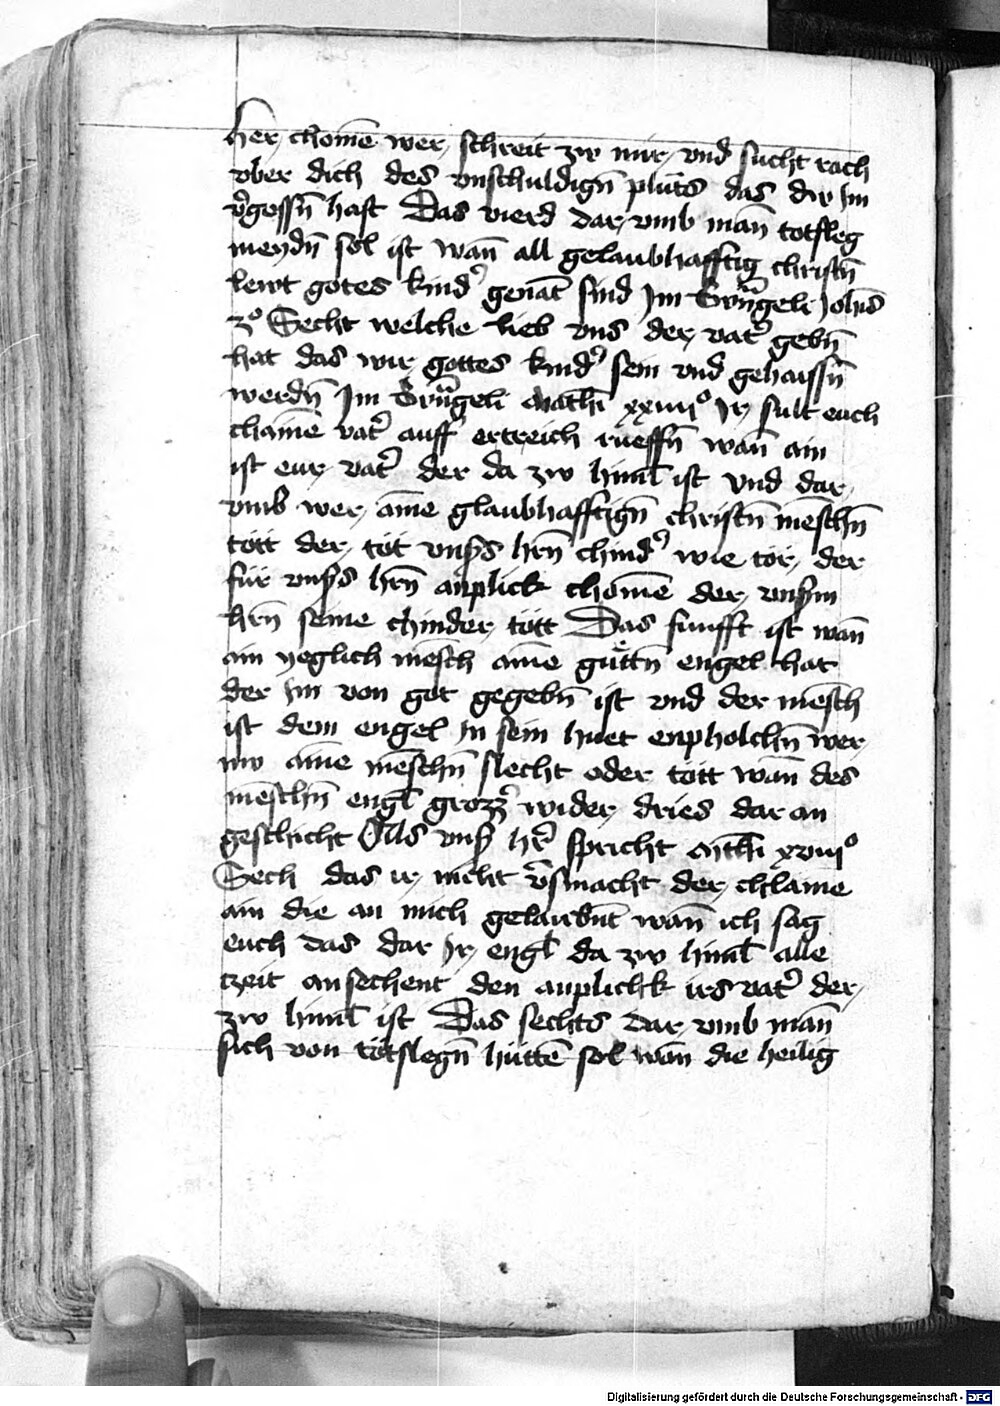 her chomē wer schreit zw mir vnd sucht rach
vber dich des vnschuldigñ plūts das dw Im
v̾gossñ hast Das vierd dar vmb man̄ totsleg
meydñ sol ist wan̄ all gelaubhafftig christñ
lewt gotes kind̾ genāt sind Im Ewn̄geli Joħis
3º Secht welche lieb vns der vat̾ gebñ
hat das wir gottes kind̾ sein vnd gehaissñ
werdñ Im Ewn̄geli Mathī xxiiiº Ir sult euch
chainē vat̾ auff ertreich rueffñ wan̄ ain
ist eur vat̾ der da zw himl̄ ist vnd dar
vmb wer ainē glaubhafftign̄ christñ mēschñ
tött der töt vnßs hrñ chind̾ wie tör der
für vnßs hrñ anplick chomē der vnßm
hrñ seine chinder tött Das funfft ist wan̄
ain yeglich mēsch ainē gūttñ engel hat
der Im von got gegebñ ist vnd der mēsch
ist dem engel In sein huet enpholchñ wer
nw ainē mēschñ slecht oder tött wan̄ des
mēschñ engl̄ grozz̾ wider dries dar an
geschicht Als vnß hr̄ spricht Mthī xviiiº
Sech das ir nicht v̾smacht der chlaine
ain die an mich gelaubn̄t wan̄ ich sag
euch das dar Ir engl̄ da zw himl̄ alle
tzeit ansechent den anplickh irs vat̾ der
zw himl̄ ist Das sechts dar vmb man̄
sich von tötslegñ hüttē sol wan̄ die heilig
Digitalisierung gefördert durch die Deutsche Forschungsgemeinschaft - DFG